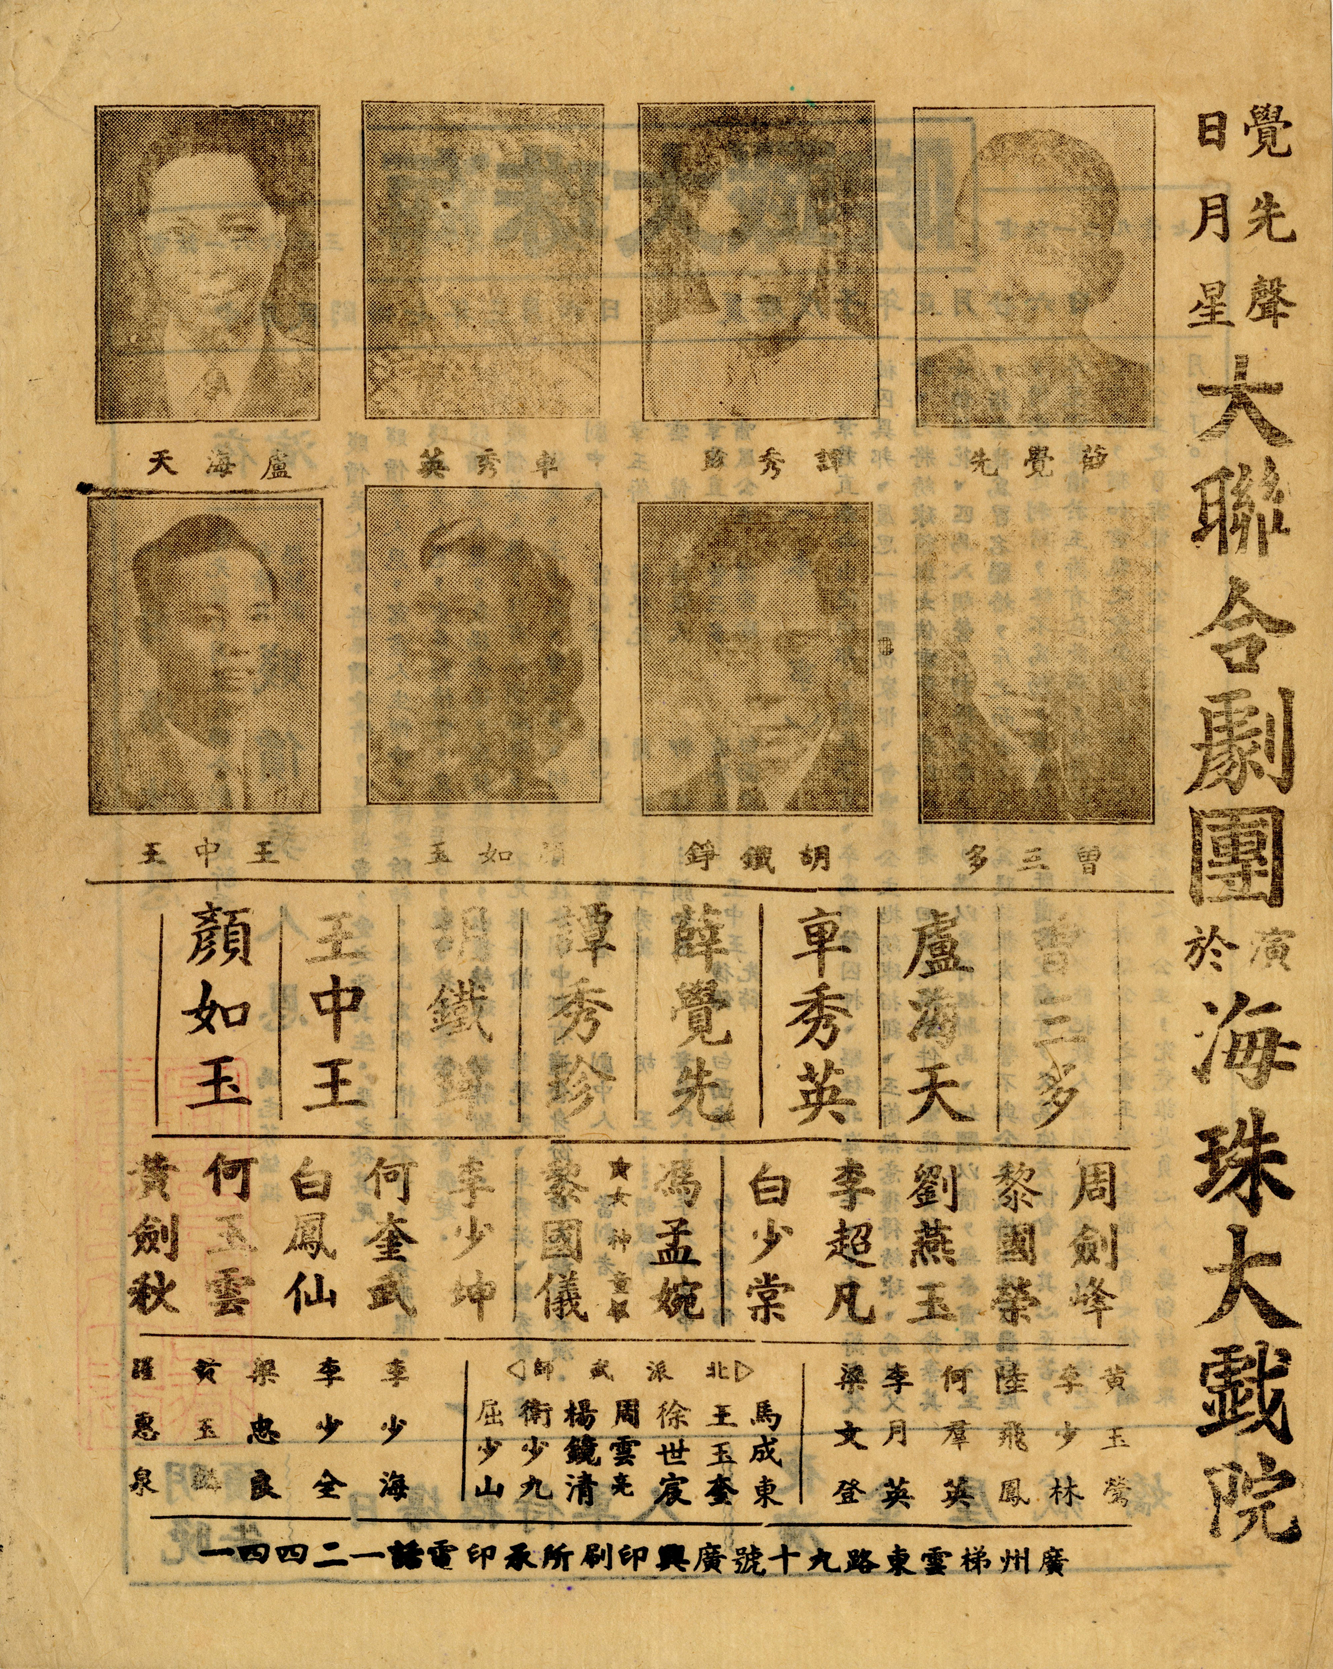 覺先聲
日月星
大聯合劇團
演於
海珠大戲院
盧海天
車秀英
譚秀珍
薛覺先
王中王
顏如玉
胡鐵錚
曾三多
曾三多
盧海天
車秀英
薛覺先
譚秀珍
胡鐵錚
王中王
顏如玉
周劍峰
黎國榮
劉燕玉
李超凡
白少棠
馮孟婉
★女神童★
黎國儀
李少坤
何奎武
白鳳仙
何玉雲
黃劍秋
黃玉鶯
李少林
陸飛鳳
何羣英
李月英
梁文登
北派武師
馬成東
王玉奎
徐世宸
周雲亮
楊鏡清
衛少九
屈少山
李少海
李少全
梁忠良
黃玉
羅惠泉
廣州梯雲東路九十號廣興印刷所承印電話一二四四一